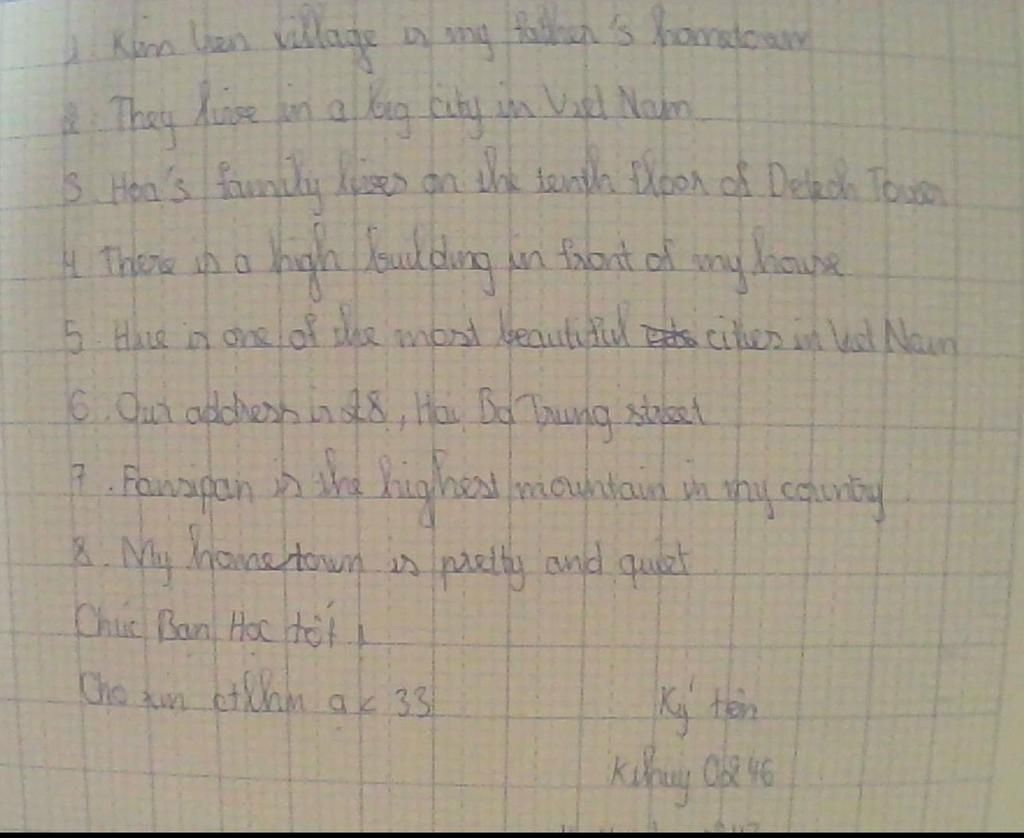 1. Kim Lien village is my father's hometown
2. They live in a big city in Viet Nam
3. Hoa's family lives on the tenth floor of Detech Tower
4 There is a high building in front of my house
5. Hue is one of the most beautiful cities in Viet Nam
6. Our address is 28, Hai Ba Trung street
7. Fansipan is the highest mountain in my country
8. My hometown is pretty and quiet
Chúc Bạn Học tốt!
Cho xin ctlhn ạ < 33
Ký tên